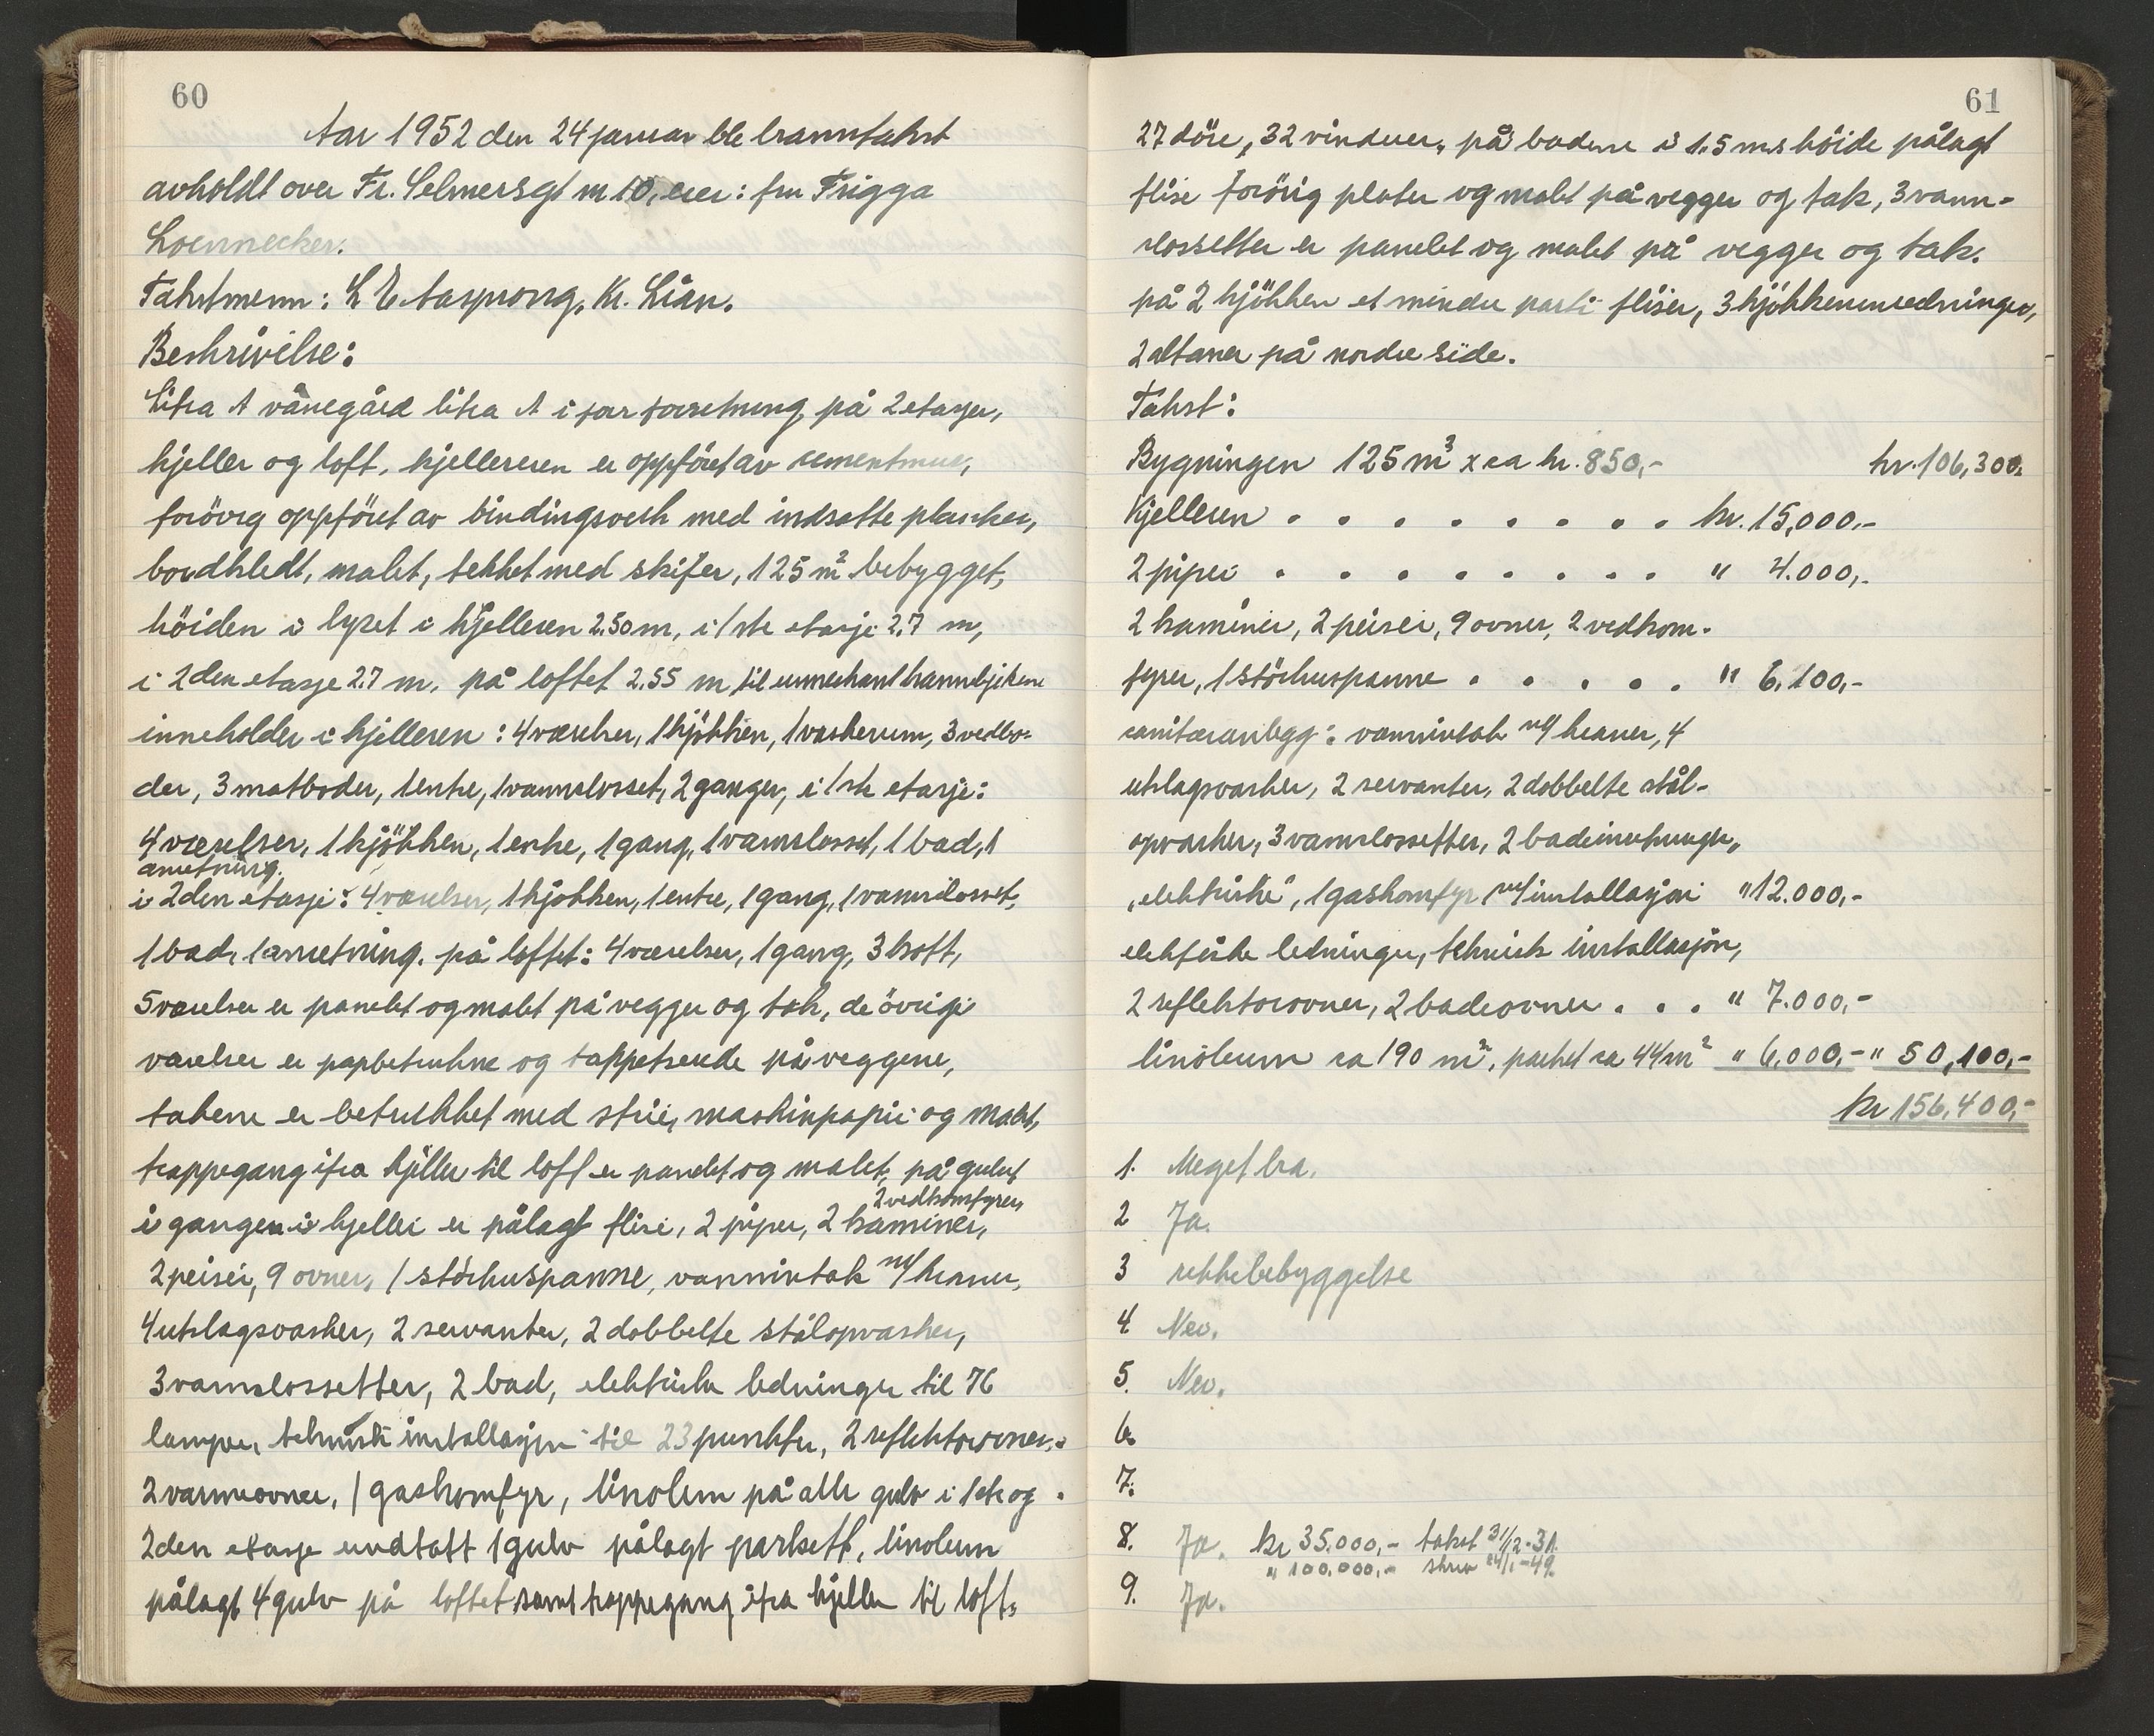 60
Aar 1952 den 24 januar ble branntakst
avholdt over Fr. Selmersgt nr 10, eier: fru Frigga
Loennecker.
Takstmenn: L E Kr. Lian.
Beskrivelse:
Litra A vånegård litra A i forr forretning på 2 etasjer,
kjeller og loft, kjelleren er oppført av sementmur,
forövrig oppföret av bindingsverk med indsatte planker,
bordkledt, malet, tekket med skifer, 125 m² bebygget,
höiden i lyset i kjelleren 2.50 m, i 1ste etasje 2.7 m,
i 2den etasje 2.7 m, på loftet 2.55 m til unnerkant hannbjelkene
inneholder i kjelleren: 4 værelser, 1 kjökken, 1 vaskerum, 3 vedbo-
der, 3 matboder, 1 entre, 1 vannclosset, 2 ganger, i 1ste etasje:
4 værelser, 1 kjökken, 1 entre, 1 gang, 1 vannclosset, 1 bad, 1
anretning.
i 2den etasje: 4 værelser, 1 kjökken, 1 entre, 1 gang, 1 vannclosset,
1 bad, 1 anretning. på loftet: 4 værelser, 1 gang, 3 kott,
5 værelser er panelet og malet på vegger og tak, de övrige
værelser er papbetrukne og tappetserede på veggene,
takene er betrukket med strie, maskinpapir og malet,
trappegang ifra kjeller til loft er panelet og malet, på gulvet
2 vedkomfyrer,
i gangen i kjeller er pålagt flise, 2 piper, 2 kaminer,
2 peiser, 9 ovner, 1 störhuspanne, vanninntak m/ kraner,
4 utslagsvasker, 2 servanter, 2 dobbelte stålopvasker,
3 vannclossetter, 2 bad, elektriske ledninger til 76
lamper, teknisk installasjon til 23 punkter, 2 reflektorovner,
2 varmeovner, 1 gaskomfyr, linoleum på alle gulv i 1ste og
2den etasje undtatt 1 gulv pålagt parkett, linoleum
pålagt 4 gulv på loftet samt trappegang ifra kjeller til loft.
61
27 döre, 32 vinduer, på badene i 1.5 m.s höide pålagt
flise forövrig plater og malet på vegger og tak, 3 vann-
clossetter er panelet og malet på vegger og tak.
på 2 kjökken et mindre parti fliser, 3 kjökkeninnredninger,
2 altaner på nordre side.
Takst:
Bygningen 125 m² x ca kr. 850,- kr. 106,300.
Kjelleren . . . . . . . . . kr. 15,000,-
2 piper . . . . . . . . . " 4.000,-
2 kaminer, 2 peiser, 9 ovner, 2 vedkom-
fyrer, 1 störhuspanne . . . . . " 6.100,-
sanitæranlegg: vanninntak m/ kraner, 4
utslagsvasker, 2 servanter, 2 dobbelte stål-
opvasker, 3 vannclossetter, 2 badeinnretninger,
"elektriske", 1 gaskomfyr m/ installasjon " 12.000,-
elektriske ledninger, teknisk installasjon,
2 reflektorovner, 2 badeovner . . . " 7.000,-
linoleum ca 190 m², parket ca 44 m² " 6,000,- " 50,100,-
kr 156,400,-
1. Meget bra.
2 Ja.
3 rekkebebyggelse
4. Nei.
5. Nei.
6.
7.
8. Ja. kr 35.000,- takst 31/12-31.
" 100,000,- skriv 24/1-49.
9. Ja.